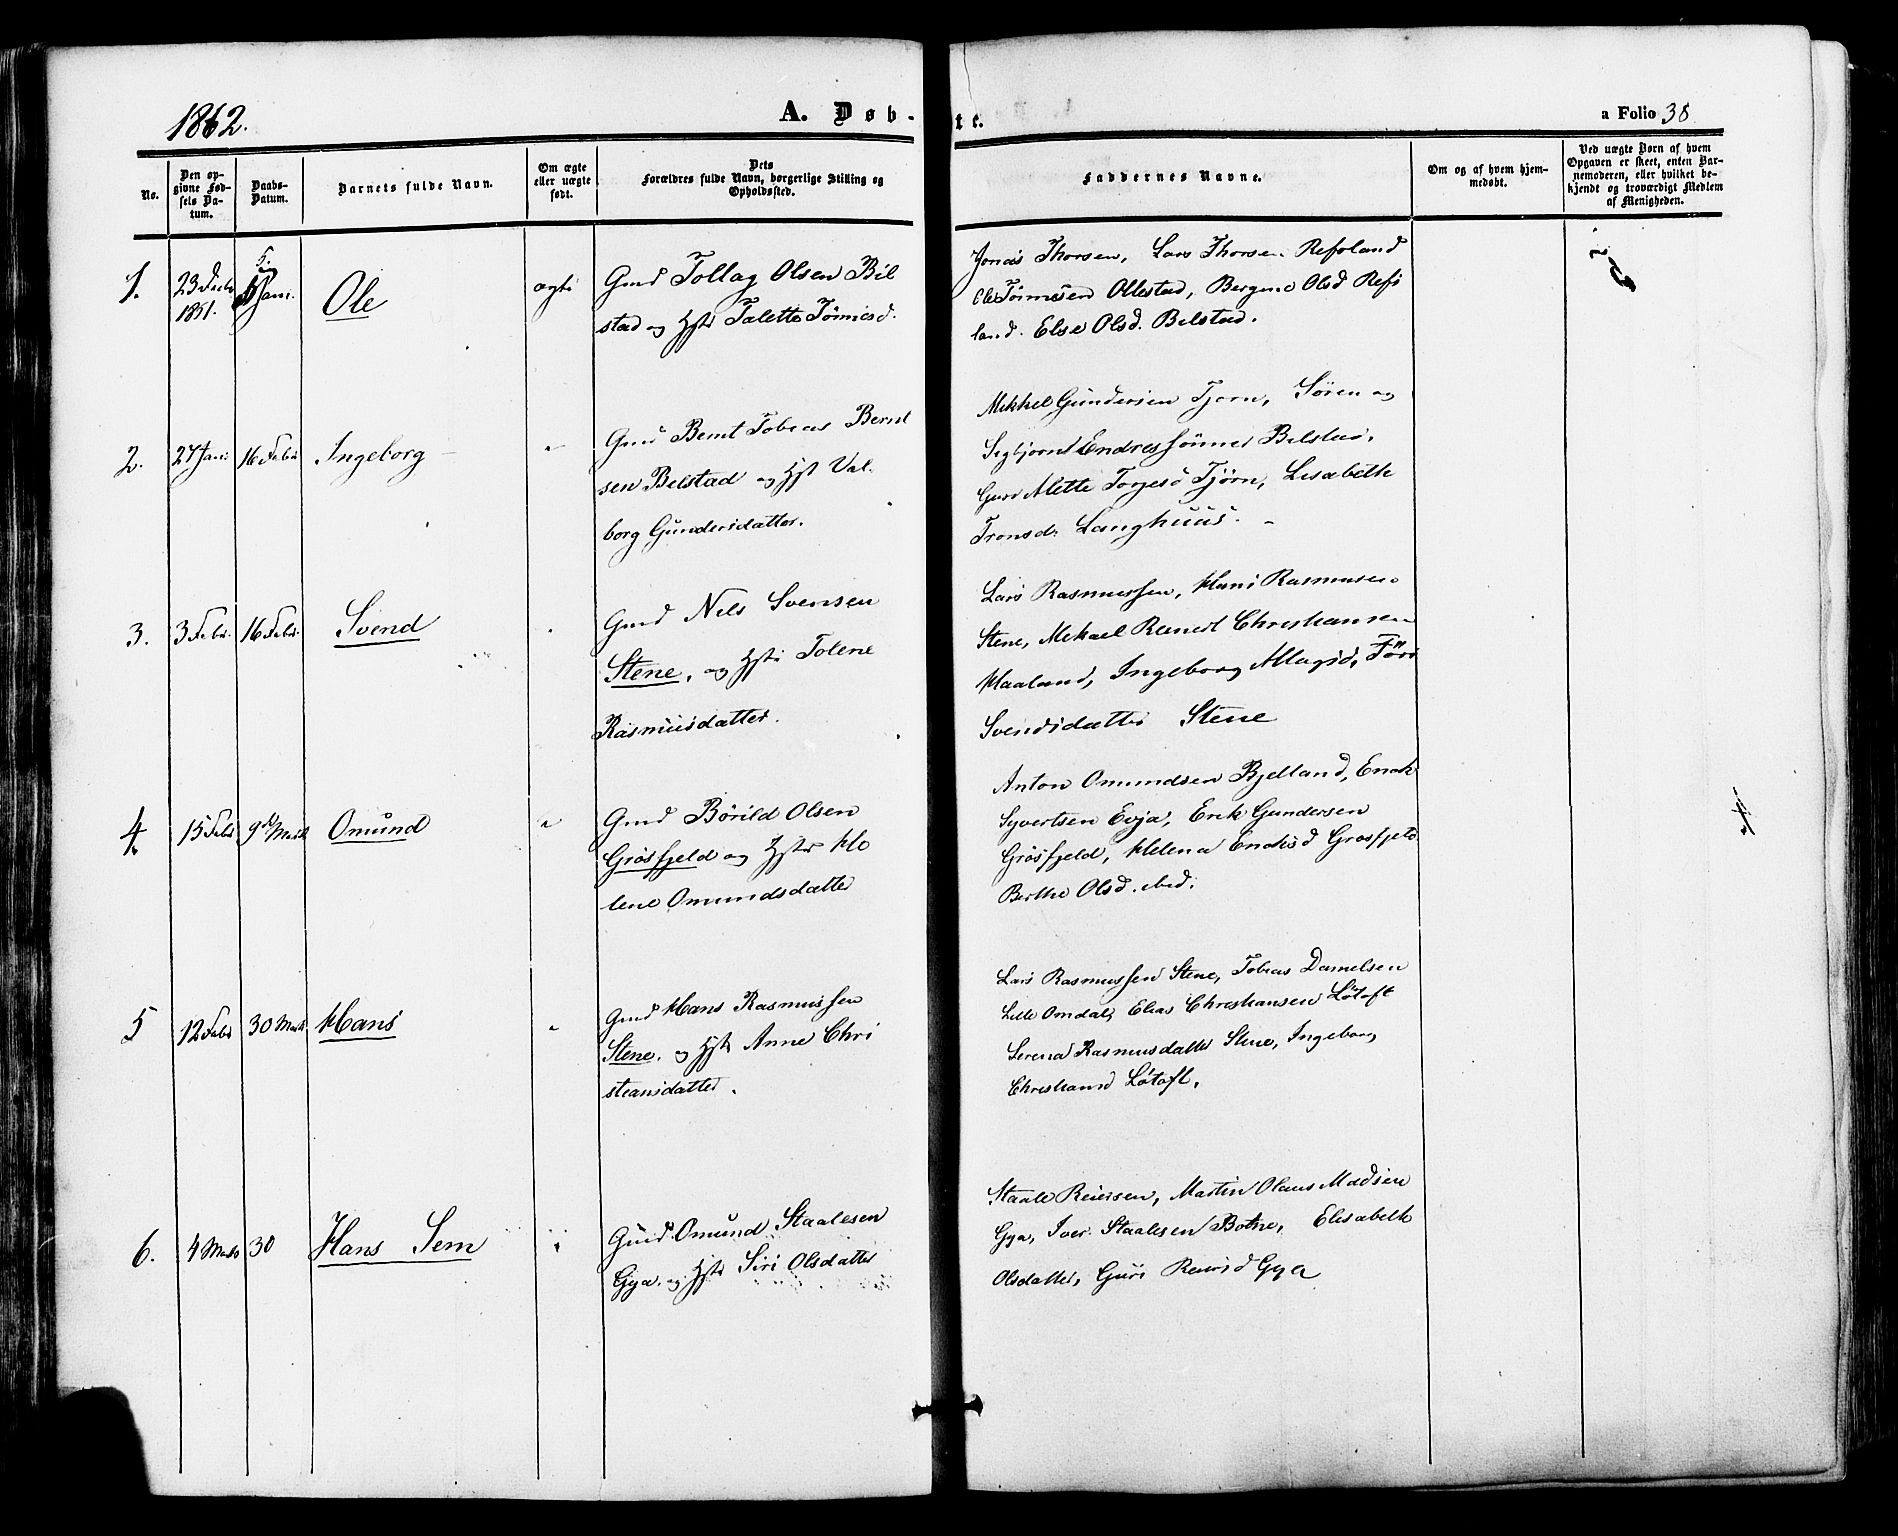 1862.
A. Døb-
te.
a Folio 38
No.
Den op-
givne Fød-
sels Da-
tum.
Daabs-
Datum.
Barnets fulde Navn.
Om ægte
eller uægte
født.
Dets
Forældres fulde Navn, borgerlige Stilling og
Opholdssted.
Faddernes Navne.
Om og af hvem hjem-
medøbt.
Ved uægte Børn af hvem
Opgaven er skeet, enten Bar-
nemoderen, eller hvilket be-
kjendt og troværdigt Medlem
af Menigheden.
1.
23
1851.
5.
Jani.
Ole
ægte
Gmd Tollag Olsen Bil
stad og Hst Talette Tönnesd.
Jonas Thorsen, Lars Thorsen Refsland
Ole Tönnesen Ollestad, Bergine Olsd Refs
land. Else Olsd. Belstad.
2.
27 Jani
16 Febr
Ingeborg
"
Gmd Bernt Tobias Bernt
sen Belstad og Hst Val
borg Gundersdatter.
Mikkel Gundersen Tjorn, Sören og
Sigbjørnt Endressönner Belstad,
Guri Mette Torgesd Tjörn, Lisabeth
Tronsd. Langhuus.
3.
3 Febr.
16 Febr.
Svend
"
Gmd Nils Svensen
Stene, og Hst Tolene
Rasmusdatter.
Lars Rasmussen, Hans Rasmusen
Stene, Mikael Reinert Christiansen
Haaland, Ingeborg Allagsd,
Svendsdatter Stene
4.
15 Febr
9de Marts
Omund
"
Gmd Börild Olsen
Grösfjeld og Hst He
lene Omundsdatter
Anton Omundsen Bjelland, Enok
Syvertsen Evja, Erik Gundersen
Grösfjeld, Helena Enoksd Grosfjeld
Berthe Olsd. ibid.
5
12 Febr
30 Marts
Hans
"
Gmd Hans Rasmussen
Stene, og Hst Anne Chri
stiansdatter.
Lars Rasmussen Stene, Tobias Danielsen
Lille Omdal, Elias Christiansen Lötoft
Serena Rasmusdatter Stene, Ingeborg
Christiansd Lötoft.
6.
4 Marts
30
Hans Sem
"
Gmd Omund Staalesen
Gya, og Hst Siri Olsdatter
Staale Reiersen, Martin Olaus Madsen
Gya, Iver Staalesen Botne, Elisabeth
Olsdatter, Guri Reiersd Gya